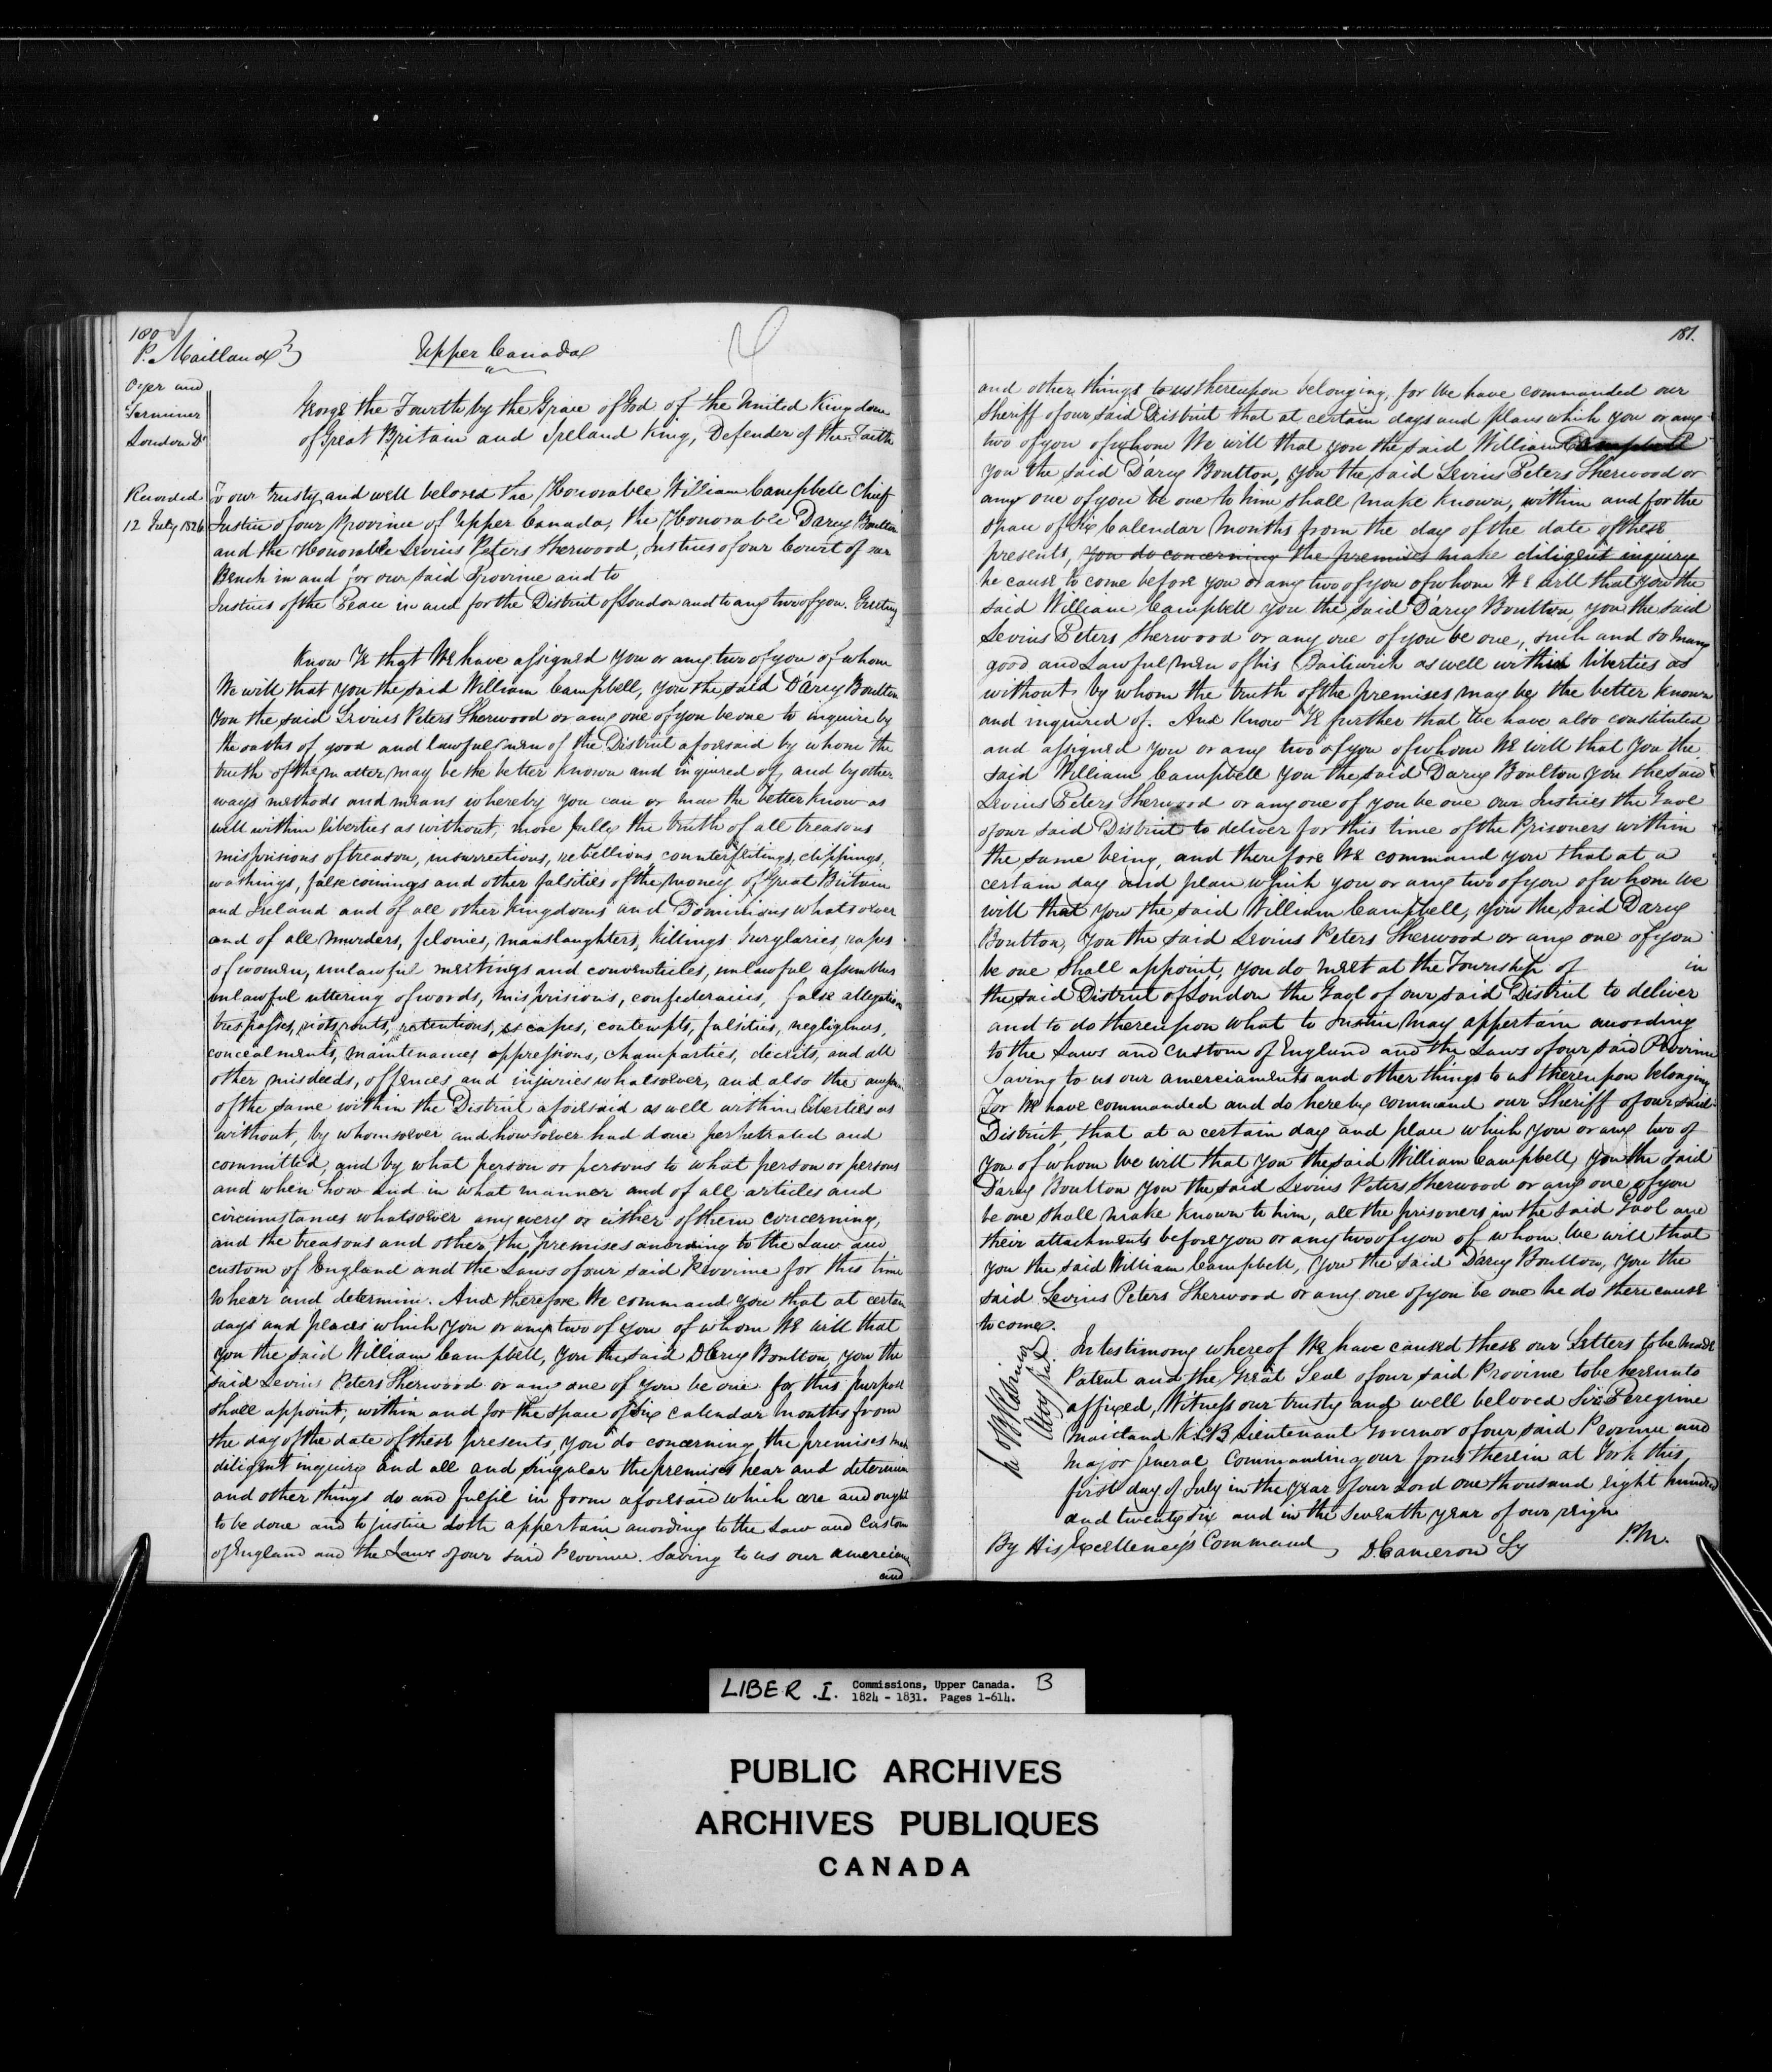 180
P. Maitland
Upper Canada
Oyer and
Terminer
London Dt
George the Fourth by the Grace of God of the United Kingdom
of Great Britain and Ireland King, Defender of the Faith
Recorded
12 July 1826
To our trusty and well beloved The Honorable William Campbell Chief
Justice of our Province of Upper Canada, the Honorable Darcy Boulton
and the Honorable Levius Peters Sherwood, Justices of our Court of our
Bench in and for our said Province and to
Justices of the Peace in and for the District of London and to any two of you. Greeting
Know Ye that We have assigned you or any two of you of whom
We will that you the said William Campbell, you the said D'arcy Boulton
you the said Levius Peters Sherwood or any one of you be one to inquire by
the oaths of good and lawful men of the District aforesaid by whom the
truth of the matter may be the better known and inquired of, and by other
ways methods and means whereby you can or may the better know as
well within liberties as without, more fully the truth of all treasons
misprisions of treason, insurrections, rebellions counterfeitings, clippings,
washings, false coinings and other falsities of the money of Great Britain
and Ireland and of all other Kingdoms and Dominions whatsoever
and of all murders, felonies, manslaughters, killings burglaries, rapes
of women, unlawful meetings and conventicles, unlawful assemblies
unlawful uttering of words, misprisions, confederacies, false allegations
trespasses, riots, routs, retentions, escapes, contempts, falsities, negligences,
concealments, maintenances oppressions, champarties, deceits, and all
other misdeeds, offences and injuries whatsoever, and also the
of the same within the District aforesaid as well within liberties as
without, by whomsoever and howsoever had done perpetrated and
committed, and by what person or persons to what person or persons
and when how and in what manner and of all articles and
circumstances whatsoever any every or either of them concerning,
and the treasons and other the premises according to the Law and
custom of England and the Laws of our said Province for this time
to hear and determine. And therefore We command you that at certain
days and places which you or any two of you of whom We will that
you the said William Campbell, you the said D'arcy Boulton, you the
said Levius Peters Sherwood or any one of you be one for this purpose
shall appoint, within and for the space of six calendar months from
the day of the date of these presents, you do concerning the premises make
diligent inquiry and all and singular the premises hear and determine
and other things do and fulfil in form aforesaid which are and ought
to be done and to justice doth appertain according to the Law and Custom
of England and the Laws of our said Province. Saving to us our amerciaments
and
181.
and other things to us thereupon belonging, for We have commanded our
Sheriff of our said District that at certain days and places which you or any
two of you of whom We will that you the said William Campbell
you the said Darcy Boulton, you the said Levius Peters Sherwood or
any one of you be one to him shall make known, within and for the
space of six Calendar months from the day of the date of these
presents, you do concerning the premises make diligent inquiry
he cause to come before you or any two of you of whom We will that you the
said William Campbell you the said D'arcy Boulton you the said
Levius Peters Sherwood or any one of you be one, such and so many
good and Lawful men of his Bailiwick as well within liberties as
without by whom the truth of the premises may be the better known
and inquired of. And Know Ye further that We have also constituted
and assigned you or any two of you of whom We will that you the
said William Campbell you the said Darcy Boulton you the said
Levius Peters Sherwood or any one of you be one our Justices the Gaol
of our said District to deliver for this time of the Prisoners within
the same being, and therefore We command you that at a
certain day and place which you or any two of you of whom We
will that you the said William Campbell, you the said Darcy
Boulton, you the said Levius Peters Sherwood or any one of you
be one shall appoint, you do meet at the Township of in
the said District of London the Gaol of our said District to deliver
and to do thereupon what to Justice may appertain according
to the Laws and custom of England and the Laws of our said Province
Saving to us our amerciaments and other things to us thereupon belonging
For We have commanded and do hereby command our Sheriff of our said
District, that at a certain day and place which you or any two of
you of whom We will that you the said William Campbell, you the said
D'arcy Boulton you the said Levius Peters Sherwood or any one of you
be one shall make known to him, all the prisoners in the said Gaol and
their attachments before you or any two of you of whom We will that
you the said William Campbell, you the said Darcy Boulton, you the
said Levius Peters Sherwood or any one of you be one he do there cause
to come.
In testimony whereof We have caused these our Letters to be made
Patent and the Great Seal of our said Province to be hereunto
affixed, Witness our trusty and well beloved Sir Peregrine
Maitland K.C.B Lieutenant Governor of our said Province and
Major General Commanding our forces therein at York this
first day of July in the year of our Lord one thousand eight hundred
and twenty six and in the seventh year of our reign
By His Excellency's Command D. Cameron Sy P.M.
LIBER .I. Commissions, Upper Canada. B
1824 - 1831. Pages 1-614.
PUBLIC ARCHIVES
ARCHIVES PUBLIQUES
CANADA